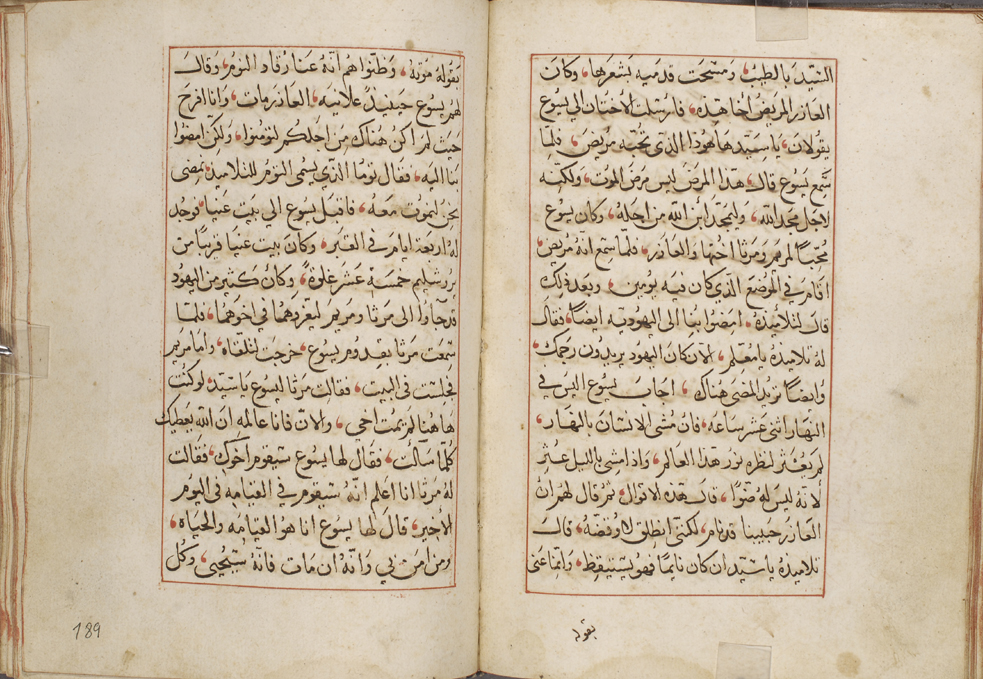 السيد بالطيب، ومسحت قدميه بشعرها، وكان
العازر المريض اخا هذه، فارسلت الاختان الى يسوع
يقولان، يا سيد ها هوذا الذي تحبه مريض، فلما
سمع يسوع قال، هذا المرض ليس مرض الموت، ولكنه
لاجل مجد الله، وليمجد ابن الله من اجله، وكان يسوع
محبا لمريم ومرثا اختها والعازر، فلما سمع انه مريض،
اقام في الموضع الذي كان فيه يومين، وبعد ذلك
قال لتلاميذه، امضوا بنا الى اليهوديه ايضا، فقال
له تلاميذه يا معلم، الان كان اليهود يريدون رجمك،
وايضا تريد المضى هناك، اجاب يسوع اليس في
النهار اثنى عشر ساعه، فان مشى الانسان بالنهار،
لم يعثر لنظره نور هذا العالم، واذا مشى بالليل عثر
لانه ليس له ضوا، قال هذه الاقوال، ثم قال لهم ان
العازر حبيبنا قد نام، لكنني انطلق لاوقضه، قال
تلاميذه يا سيد ان كان نايما فهو يستيقظ، وانما عنى
بقوله
بقوله موته، وظنوا هم انه عنا رقاد النوم، وقال
لهم يسوع حينيذ علانيه، العازر مات، وانا افرح
حيث لم اكن هناك من اجلكم لتومنوا، ولكن امضوا
بنا اليه، فقال توما الذي يسمى التوم للتلاميذ، نمضى
نحن لنموت معه، فاقبل يسوع الى بيت عنيا، فوجد
له اربعة ايام في القبر، وكان بيت عنيا قريبا من
يروشليم خمسة عشر غلوة، وكان كثير من اليهود
قد جاوا الى مرثا ومريم ليعزوهما في اخوهما، فلما
سمعت مرثا بقدوم يسوع، خرجت لتلقاه، واما مريم
فجلست في البيت، فقالت مرثا ليسوع يا سيد، لو كنت
هاهنا لم يمت اخي، والان فانا عالمه ان الله يعطيك
كلما سالت، فقال لها يسوع سيقوم اخوك، فقالت
له مرثا انا اعلم انه سيقوم في القيامه في اليوم
الاخير، قال لها يسوع انا هو القيامه والحياه،
ومن امن بي وانه ان مات فانه سيحيى، وكل
189